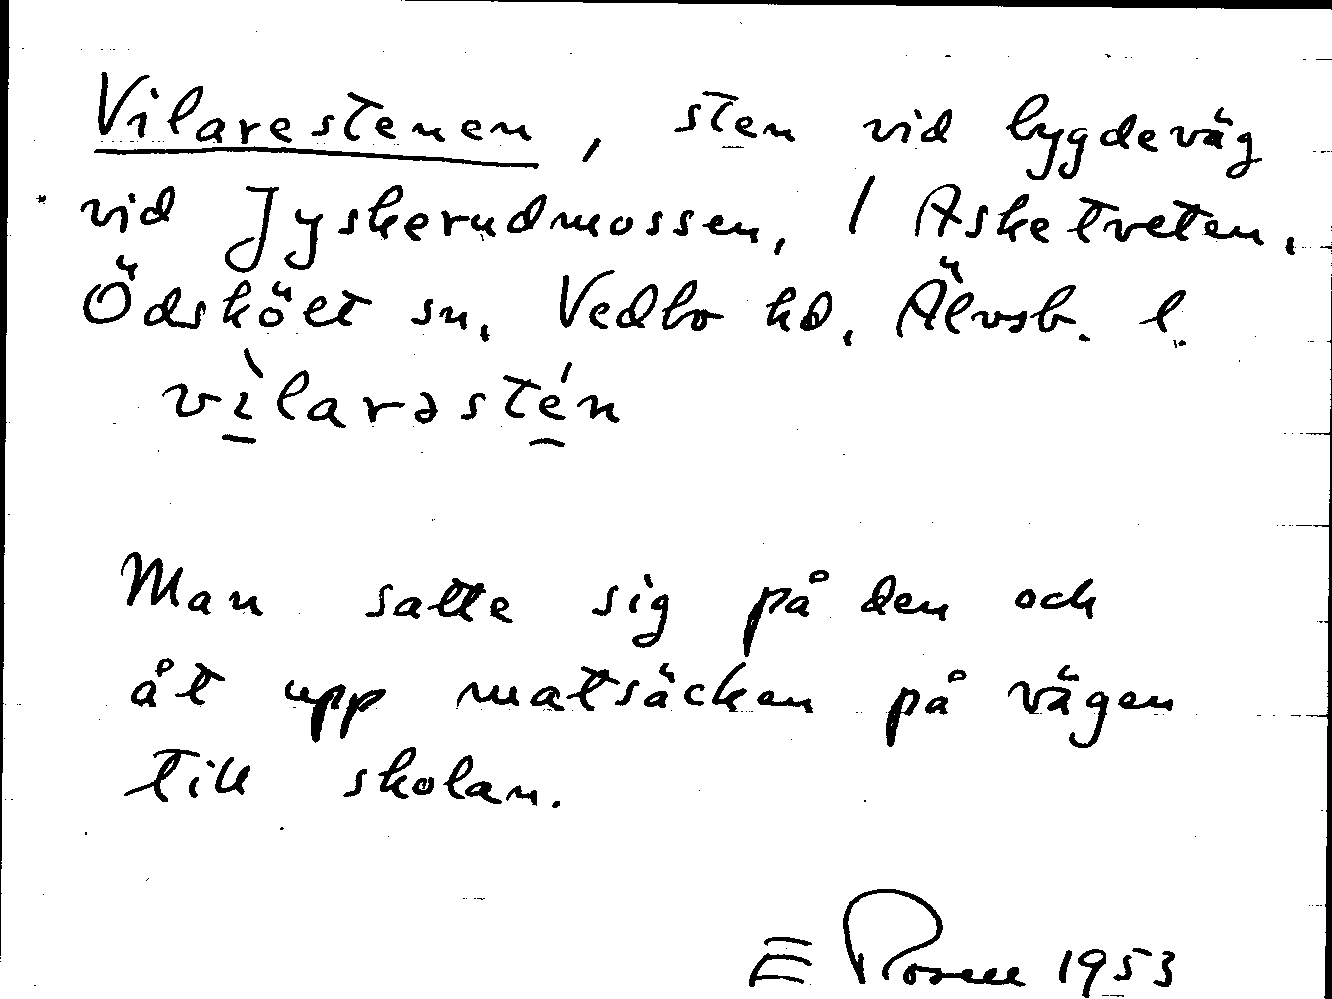 Vilarestenen, sten vid bygdeväg
vid Jyskerudmossen, 1 Asketveten.
Ödskölt sn, Vedbo hd, Älvsb. l.
vìlarəstén
Man satte sig på den och
åt upp matsäcken på vägen
till skolan.
E Rosell 1953